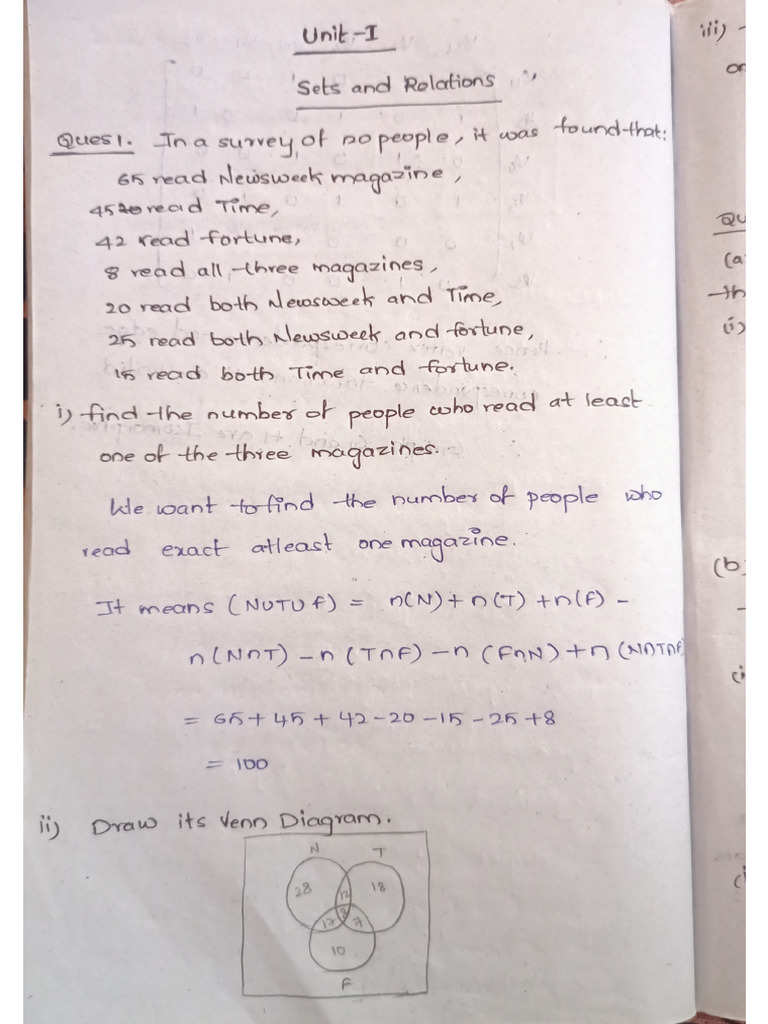 Unit-I
Sets and Relations
Ques 1. In a survey of 120 people, it was found that:
65 read Newsweek magazine,
45 read Time,
42 read fortune,
8 read all three magazines,
20 read both Newsweek and Time,
25 read both Newsweek and fortune,
15 read both Time and fortune.
i) find the number of people who read at least
one of the three magazines.
We want to find the number of people who
read exact atleast one magazine.
It means (NUTUF) = n(N) + n(T) + n(F) -
n(N∩T) - n(T∩F) - n(F∩N) + n(N∩T∩F)
= 65 + 45 + 42 - 20 - 15 - 25 + 8
= 100
ii) Draw its Venn Diagram.
N T
28 12 18
17 8 7
10
F
iii)
on
Qu
(a
th
(i)
(b
(i
(i